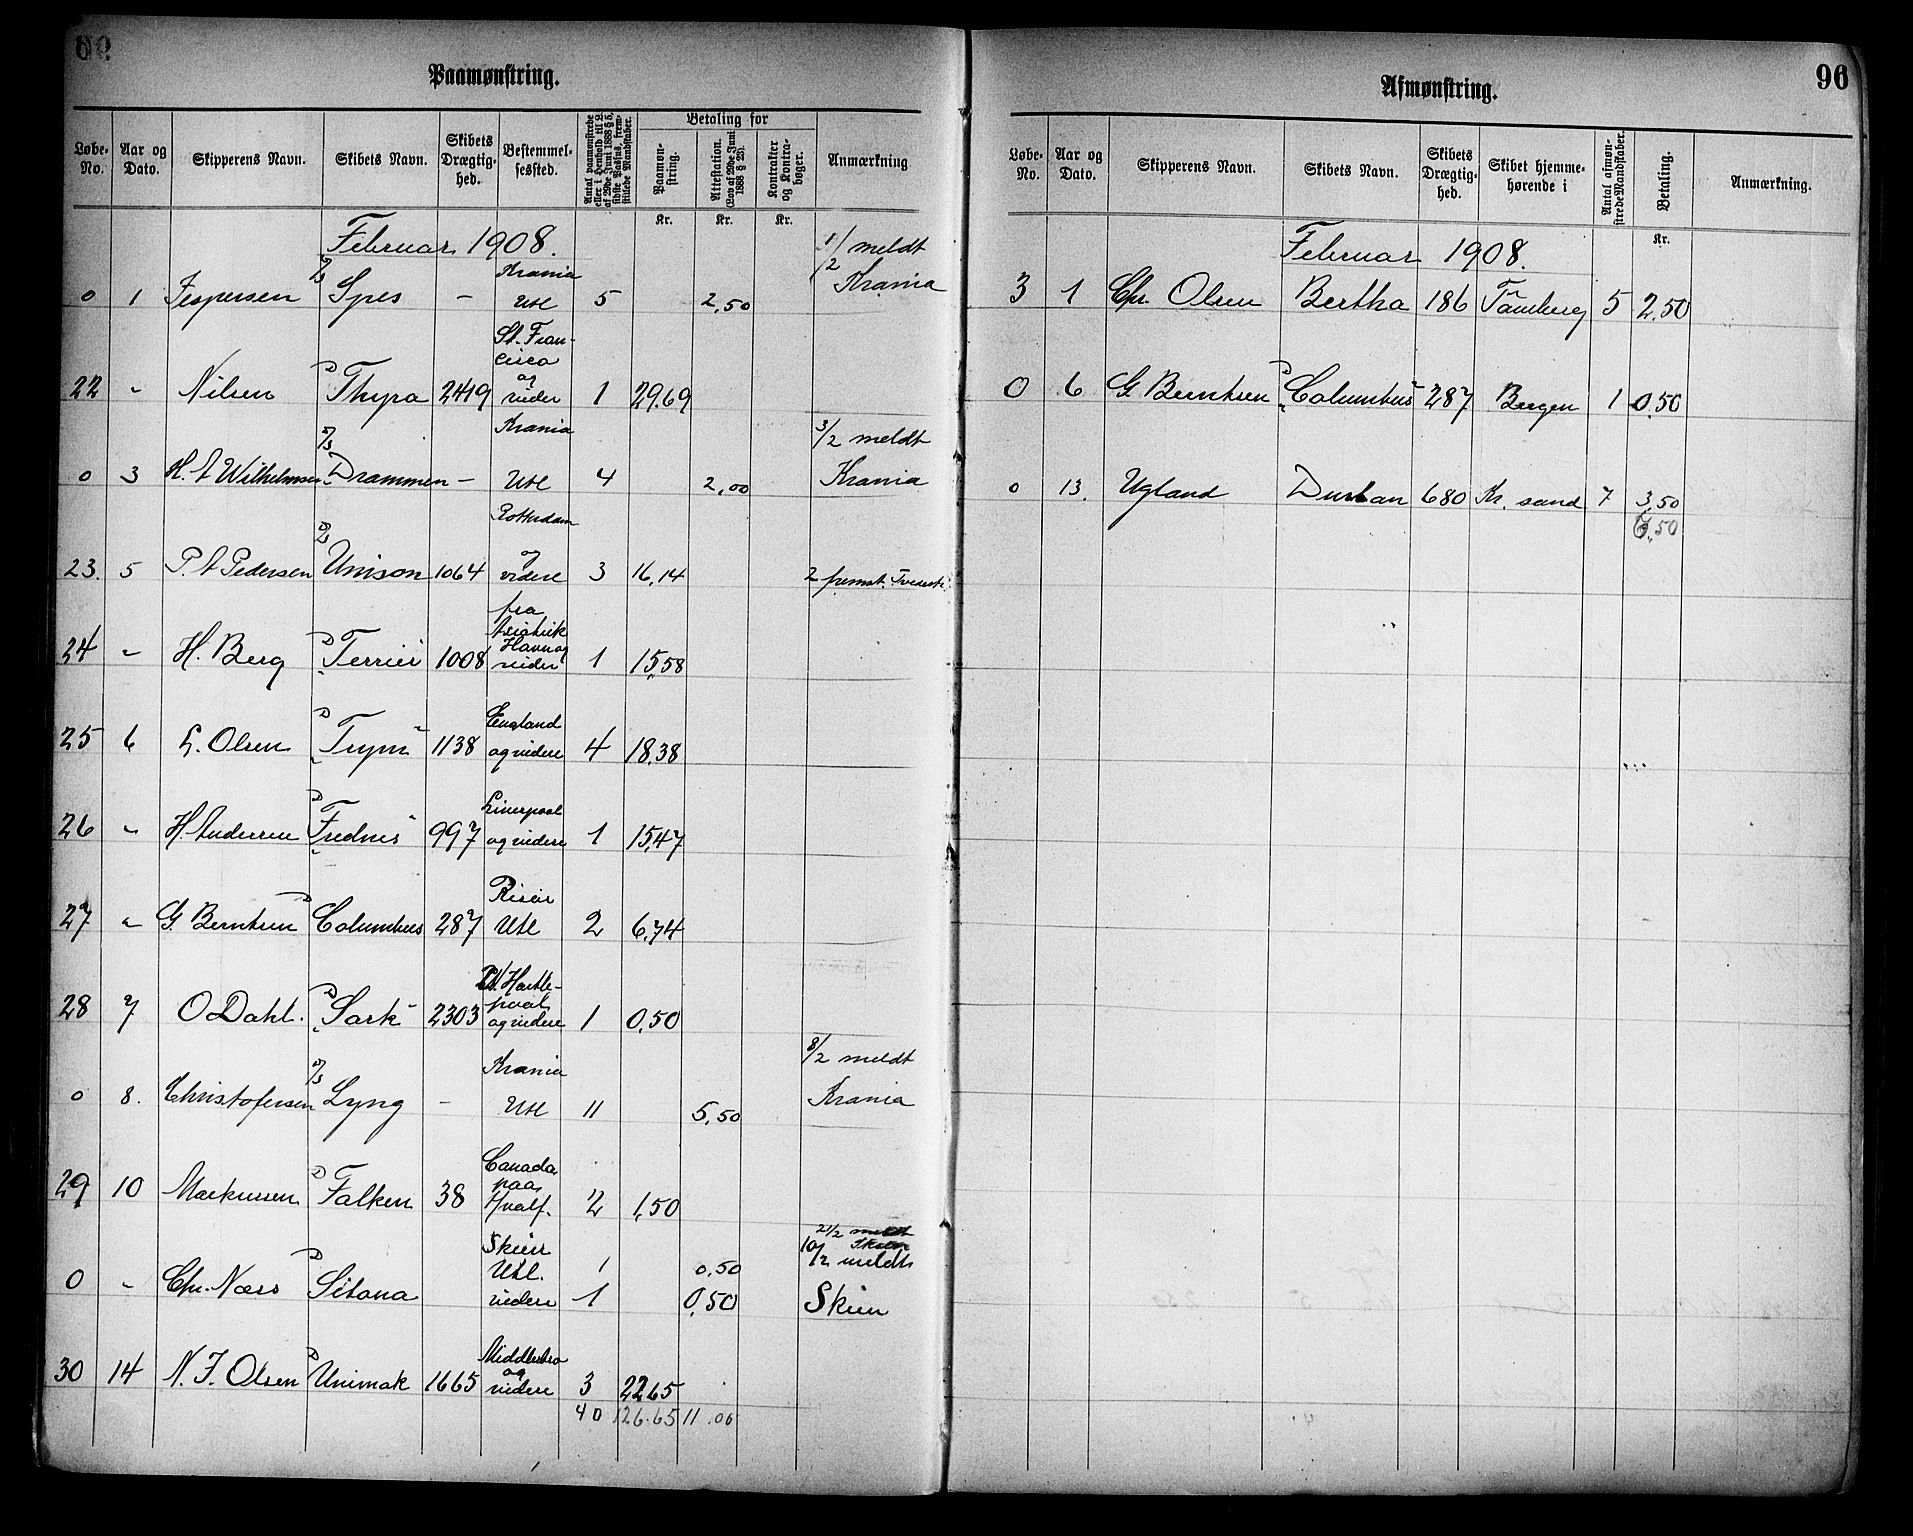 Paamønstring.
Løbe-No.
Aar og Dato.
Skipperens Navn.
Skibets Navn.
Skibets Drægtig-hed.
Bestemmel-sessted.
Antal paamønstrede eller i Henhold til L. af 29de Juni 1888 § 5, sidste Passus, frem-stillede Mandskaber.
Betaling for
Paamøn-string.
Attestation. (Lov af 29de Juni 1888 § 25).
Kontrakter og Kontra-bøger.
Anmærkning
Kr. Kr. Kr.
Februar 1908.
0 1 Jespersen Spes — Krania Utl 5 2,50 1/2 meldt Krania
22 " Nilsen D Thyra 2419 St. Fran-cisco og videre 1 29,69
0 3 H. A Wilhelmsen D/S Drammen — Krania Utl 4 2,00 3/2 meldt Krania
23. 5 P. A Pedersen Unison 1064 Rotterdam og videre 3 16,14 2 fremst. Tvedest.
24 " H. Berg D "Terrier" 1008 fra Asiatisk Havn og videre 1 15,58
25 6 L. Olsen D "Trym" 1138 England og videre 4 18,38
26 " H. Andersen D "Frednes" 997 Liverpool og videre 1 15,47
27 " G. Berntsen D Columbus 287 Risør Utl 2 6,74
28 7 O Dahl. D "Sark" 2303 W. Hartle-pool og videre 1 0,50
0 8. Christofersen D/S Lyng — Krania Utl 11 5,50 8/2 meldt Krania
29 10 Markussen D Falken 38 Canada paa Hvalf. 2 1,50
0 " Chr. Næss D Sitona Skien Utl. 1 0,50 21/2 meldt Skien
videre 1 0,50 10/2 meldt Skien
30 14 N. J. Olsen D Unimak 1665 Middlesbro og videre 3 22,65
40 126.65 11.00
Afmønstring.
96
Løbe-No.
Aar og Dato.
Skipperens Navn.
Skibets Navn.
Skibets Drægtig-hed.
Skibet hjemme-hørende i
Antal afmøn-strede Mandskaber.
Betaling.
Anmærkning.
Kr.
Februar 1908.
3 1 Chr. Olsen Bertha 186 Tønsberg 5 2,50
0 6 G Berntsen D "Columbus" 287 Bergen 1 0,50
0 13. Ugland Durban 680 Kr. sand 7 3,50
6,50